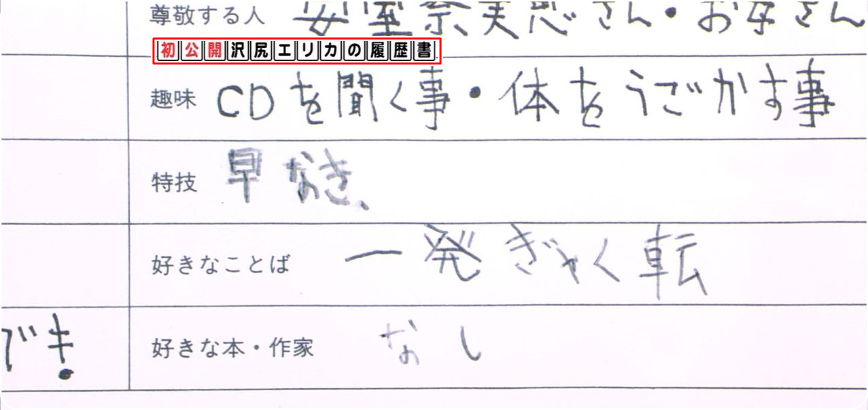 尊敬する人 安室奈美恵さん・お母さん
初公開沢尻エリカの履歴書
趣味 CDを聞く事・体をうごかす事
特技 早なき、
好きなことば 一発ぎゃく転
でも.
好きな本・作家 なし